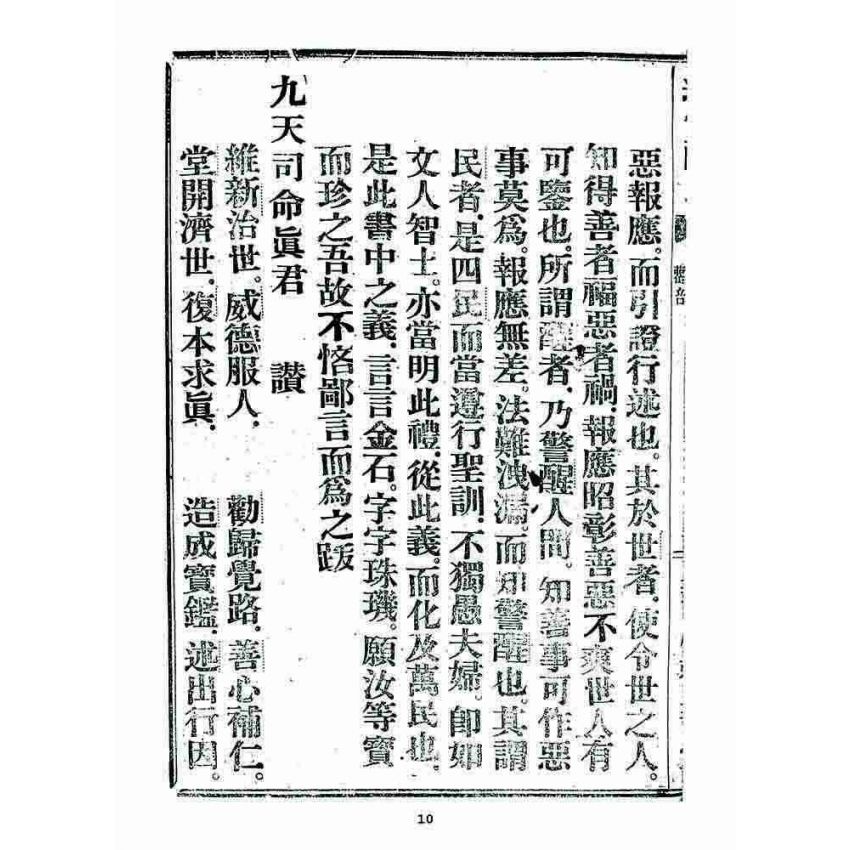 惡報應。而引證行述也。其於世者、使令世之人。
知得善者福惡者禍、報應昭彰善惡不爽世人有
可鑒也。所謂醒者、乃警醒人間。知善事可作惡
事莫為。報應無差。法難洩漏。而知警醒也。其謂
民者、是四民而當遵行聖訓、不獨愚夫婦。即如
文人智士。亦當明此禮、從此義。而化及萬民也、
是此書中之義、言言金石。字字珠璣。願汝等寶
而珍之吾故不恡鄙言而為之跋
九天司命眞君 讚
維新治世。威德服人、 勸歸覺路、善心補仁。
堂開濟世、復本求眞、 造成寶鑑、述出行因。
10